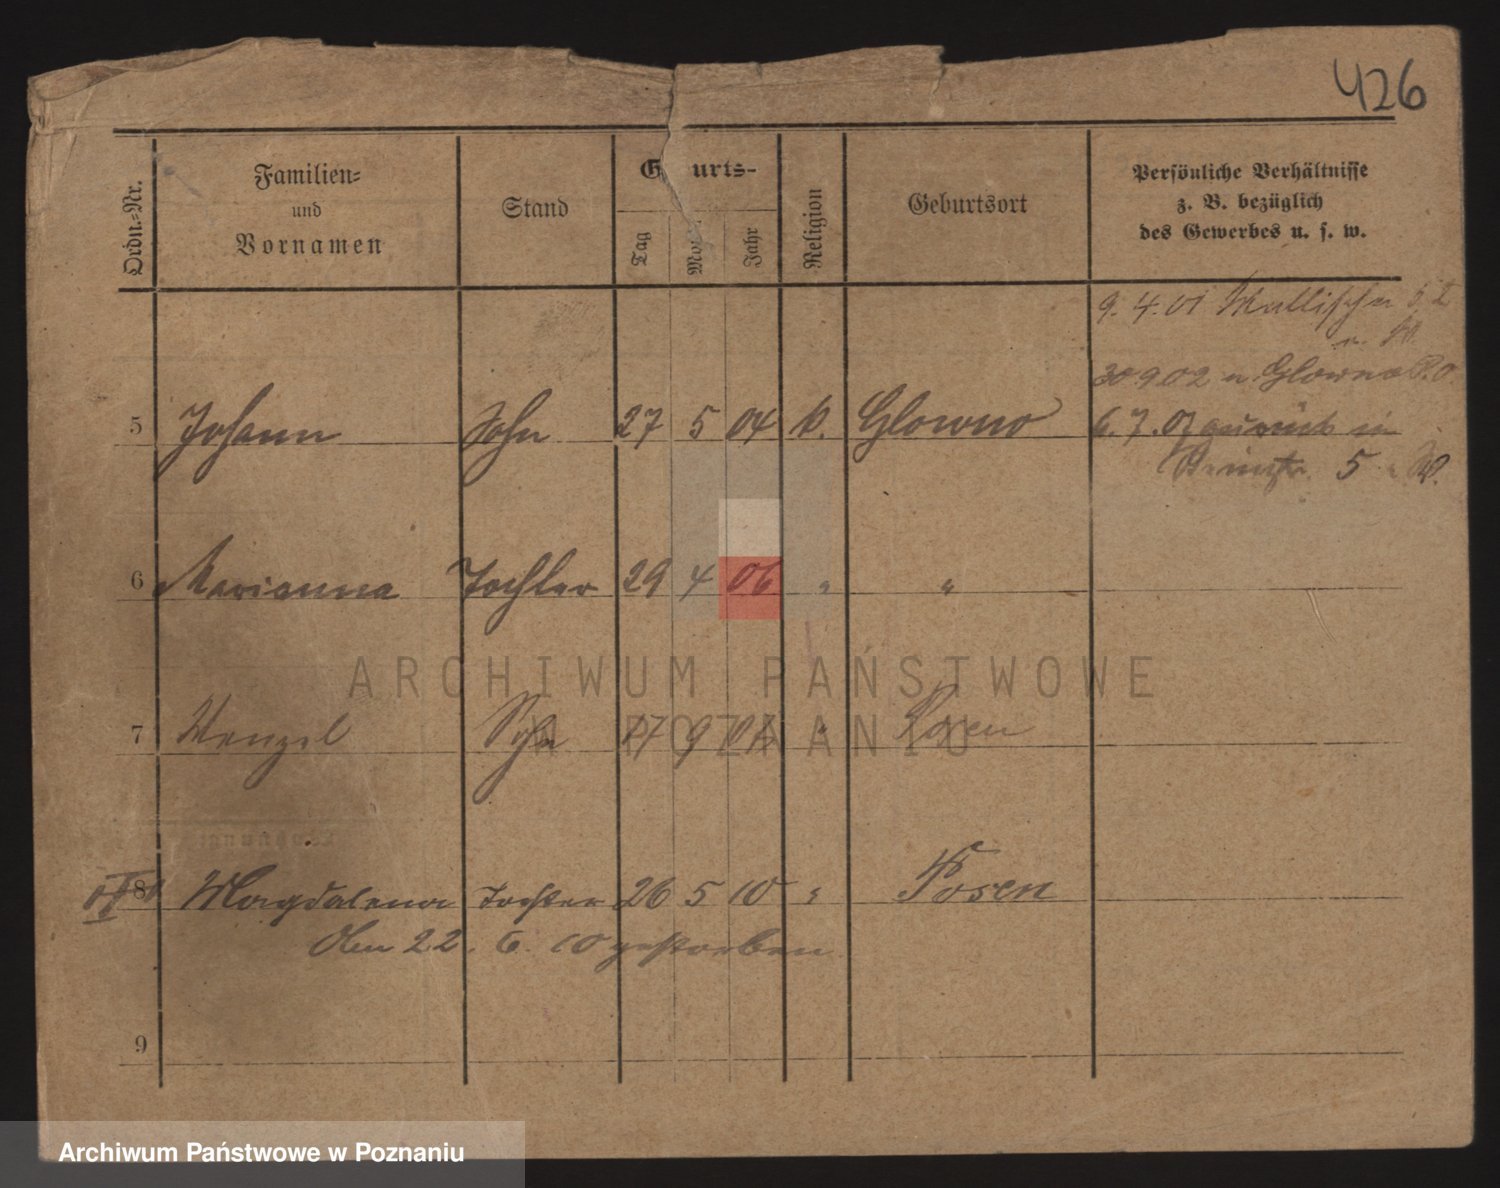 426
Ordn.-Nr.
Familien-
und
Vornamen
Stand
Geburts-
Tag
Jahr
Religion
Geburtsort
Persönliche Verhältnisse
z. B. bezüglich
des Gewerbes u. s. w.
9. 4. 01
30 9 02 n. Glowno
5 Johann Sohn 27 5 04 k. Glowno
6. 7. 07 zurück in
5
6 Marianna Tochter 29 4 06 " "
ARCHIWUM PAŃSTWOWE
W POZNANIU
7 Wenzel Sohn 17 9 08 " Posen
8 Magdalena Tochter 26 5 10 " Posen
Am 22. 6. 10 gestorben
9
Archiwum Państwowe w Poznaniu